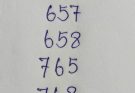 657
658
765